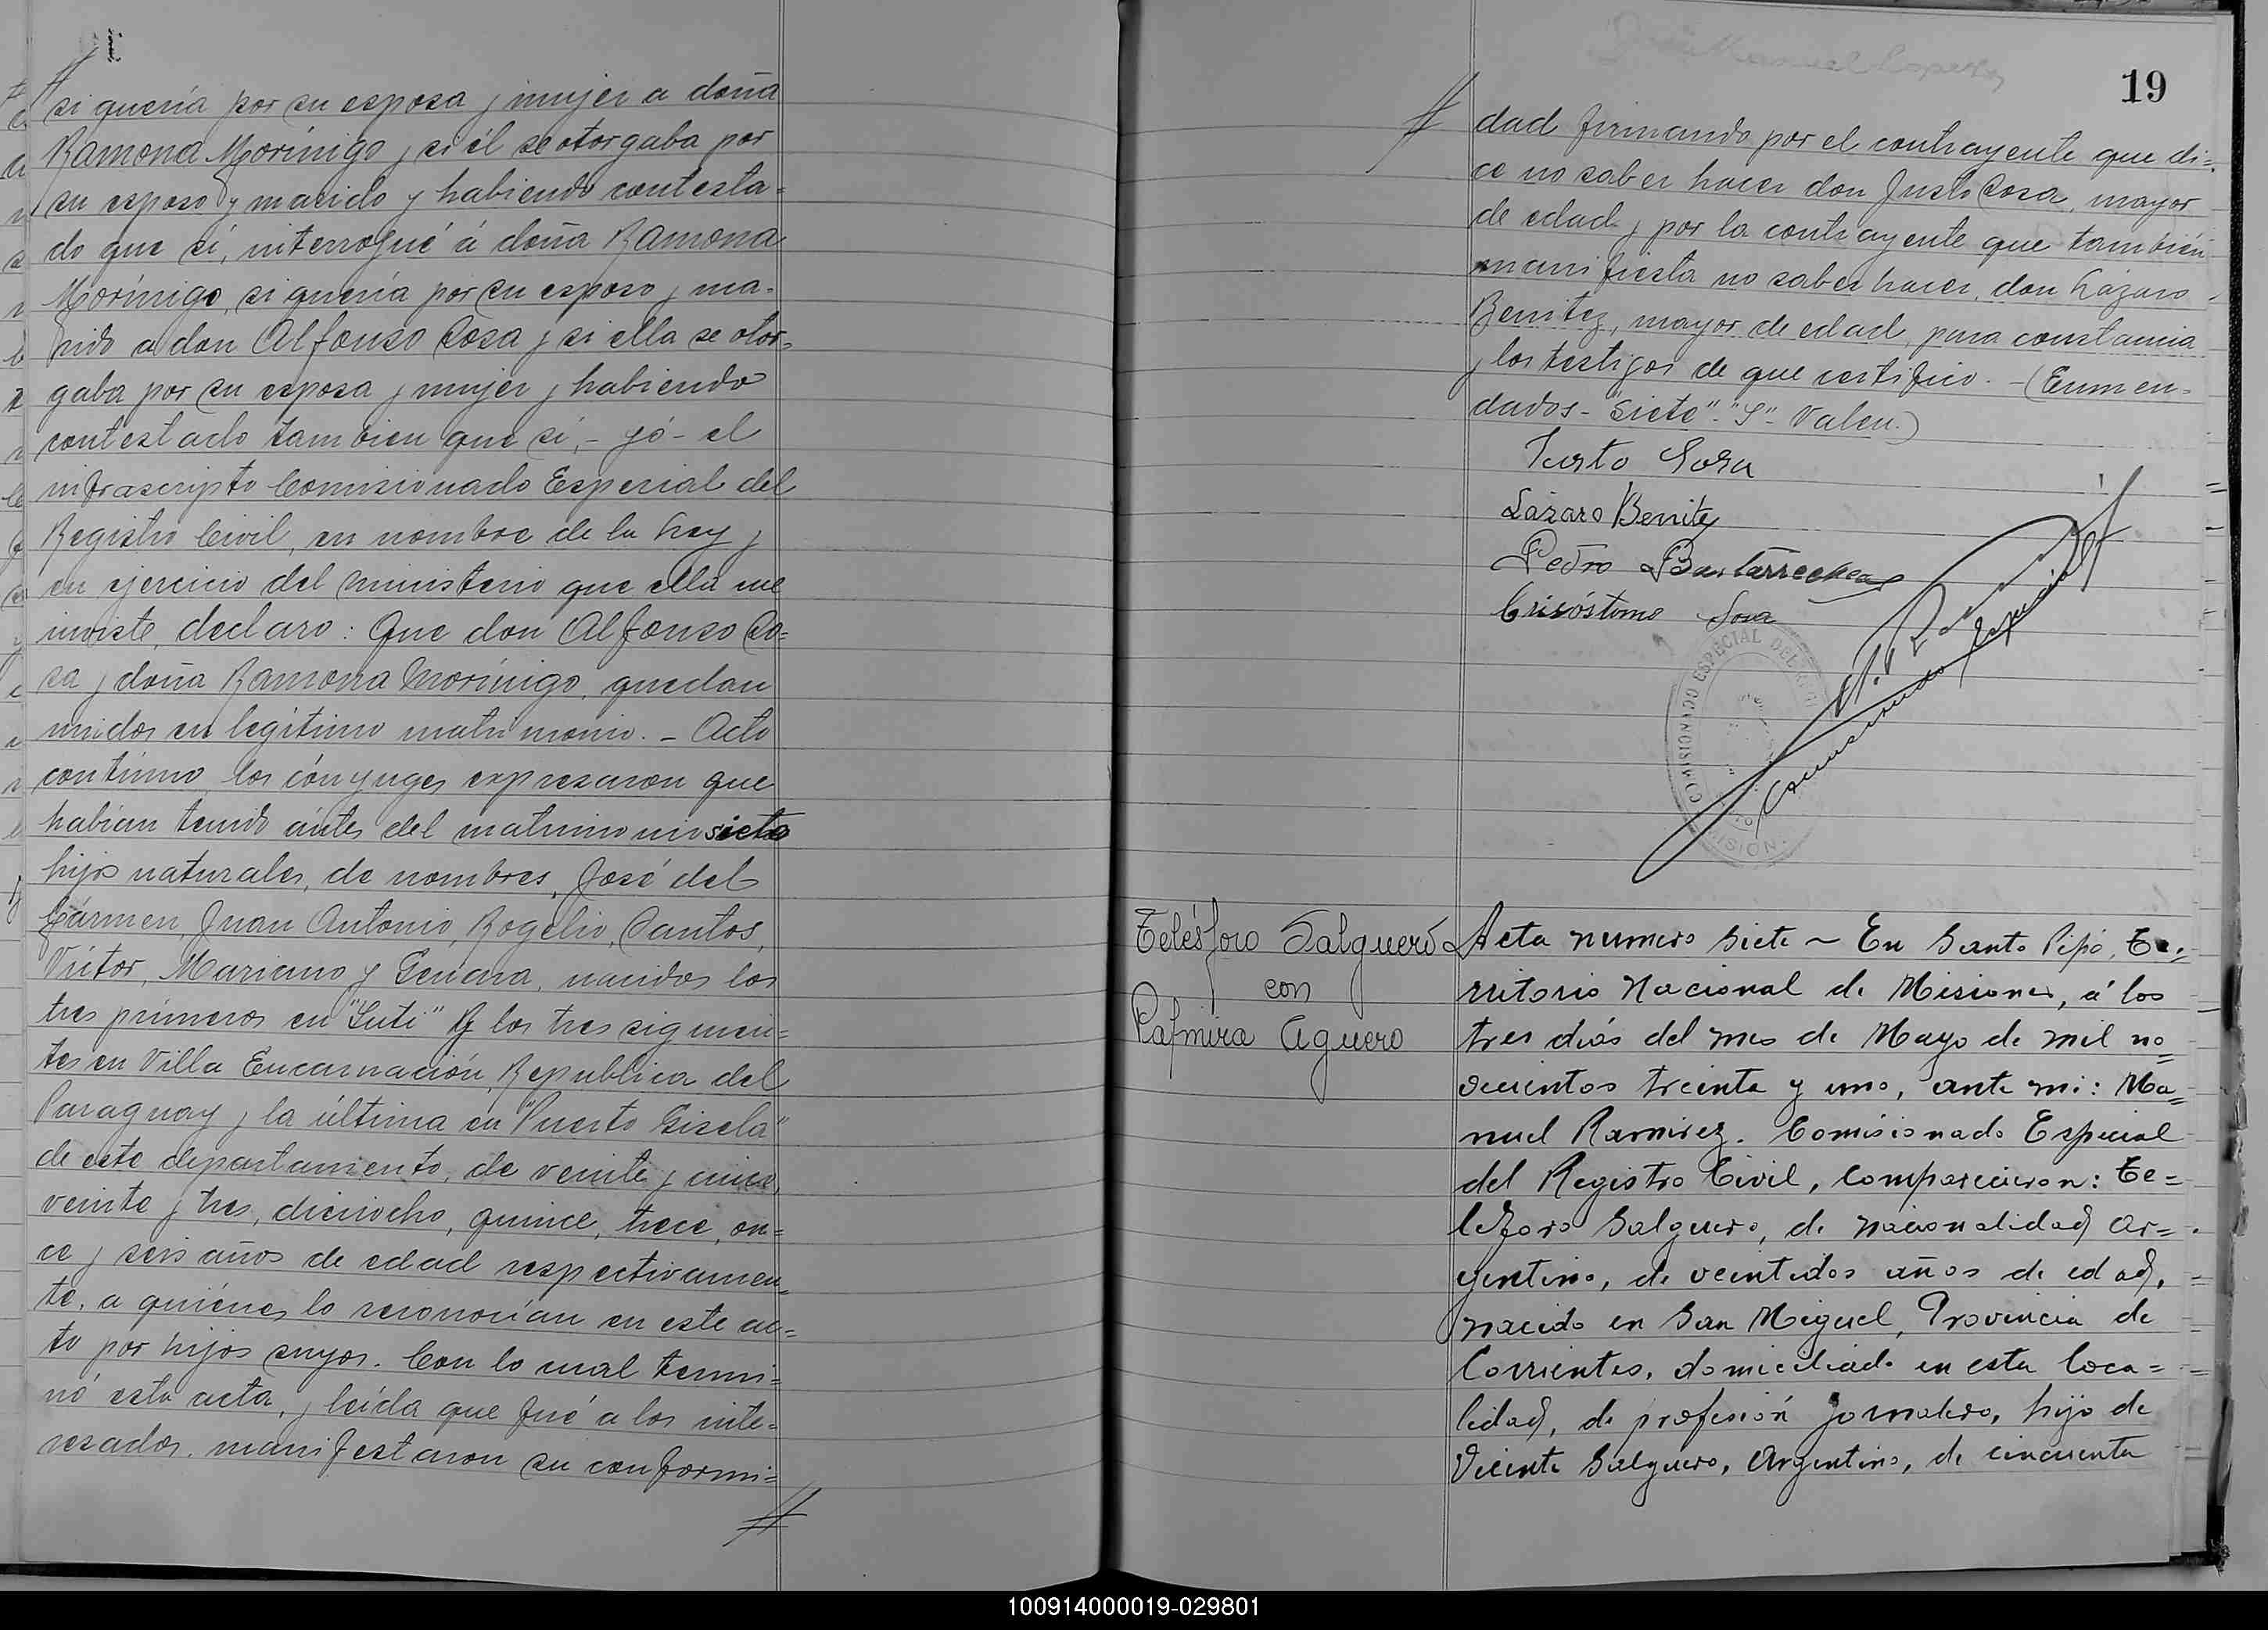 si quería por su esposa y mujer a doña
Ramona Morínigo y si él se otorgaba por
su esposo y marido y habiendo contesta=
do que sí, interrogué á doña Ramona
Morínigo, si quería por su esposo y ma-
rido a don Alfonso Sosa y si ella se otor=
gaba por su esposa y mujer y habiendo
contestado tambien que sí,- yó- el
infrascripto Comisionado Especial del
Registro Civil, en nombre de la Ley y
en ejercicio del ministerio que ella me
inviste, declaro: Que don Alfonso So=
sa y doña Ramona Morínigo, quedan
unidos en legítimo matrimonio. - Acto
contínuo los cónyuges expresaron que
habían tenido ántes del matrimonio siete
hijos naturales, de nombres, José del
Cármen, Juan Antonio, Rogelio, Santos,
Víctor, Mariano y Genara, nacidos los
tres primeros en "Yuti" y los tres siguien=
tes en Villa Encarnación, Republica del
Paraguay y la última en "Puerto Gisela"
de este departamento, de veinte y cinco,
veinte y tres, dieciocho, quince, trece, on=
ce y seis años de edad respectivamen=
te, a quiénes lo reconocían en este ac=
to por hijos suyos. Con lo cual termi=
nó esta acta, y leída que fué a los inte=
resados, manifestaron su conformi=
19
dad firmando por el contrayente que di=
ce no saber hacer don Justo Sosa, mayor
de edad y por la contrayente que también
manifiesta no saber hacer, don Lázaro
Benitez, mayor de edad, para constancia
y los testigos de que certifico. - (Enmen=
dados - "siete" - "S" - Valen.)
Justo Sosa
Lázaro Benitez
Pedro Bastarrechea
Crisóstomo Sosa
M. Ramirez
Comisionado Especial
COMISIONADO ESPECIAL DEL REGI
Telésforo Salguero
con
Palmira Aguero
Acta numero siete ~ En Santo Pipó, Te=
rritorio Nacional de Misiones, á los
tres días del mes de Mayo de mil no=
vecientos treinta y uno, ante mi: Ma=
nuel Ramirez. Comisionado Especial
del Registro Civil, Comparecieron: Te=
lezforo Salguero, de nacionalidad ar=
gentino, de veintidos años de edad,
nacido en San Miguel, Provincia de
Corrientes, domiciliado en esta loca=
lidad, de profesión Jornalero, hijo de
Vicente Salguero, Argentino, de cincuenta
100914000019-029801